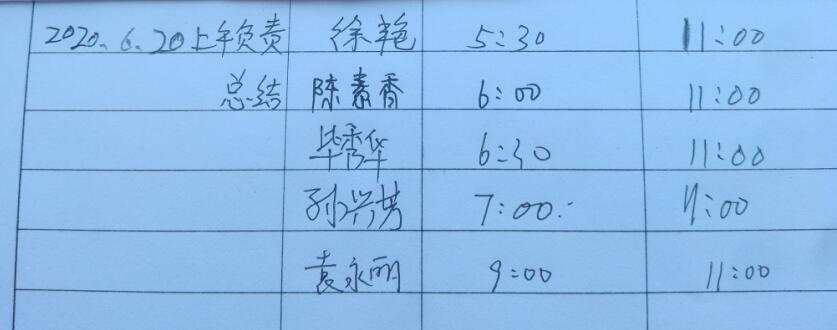 2020.6.20上午负责 徐艳 5:30 11:00
总结 陈素香 6:00 11:00
毕秀华 6:30 11:00
孙兴芳 7:00. 11:00
袁永明 9:00 11:00